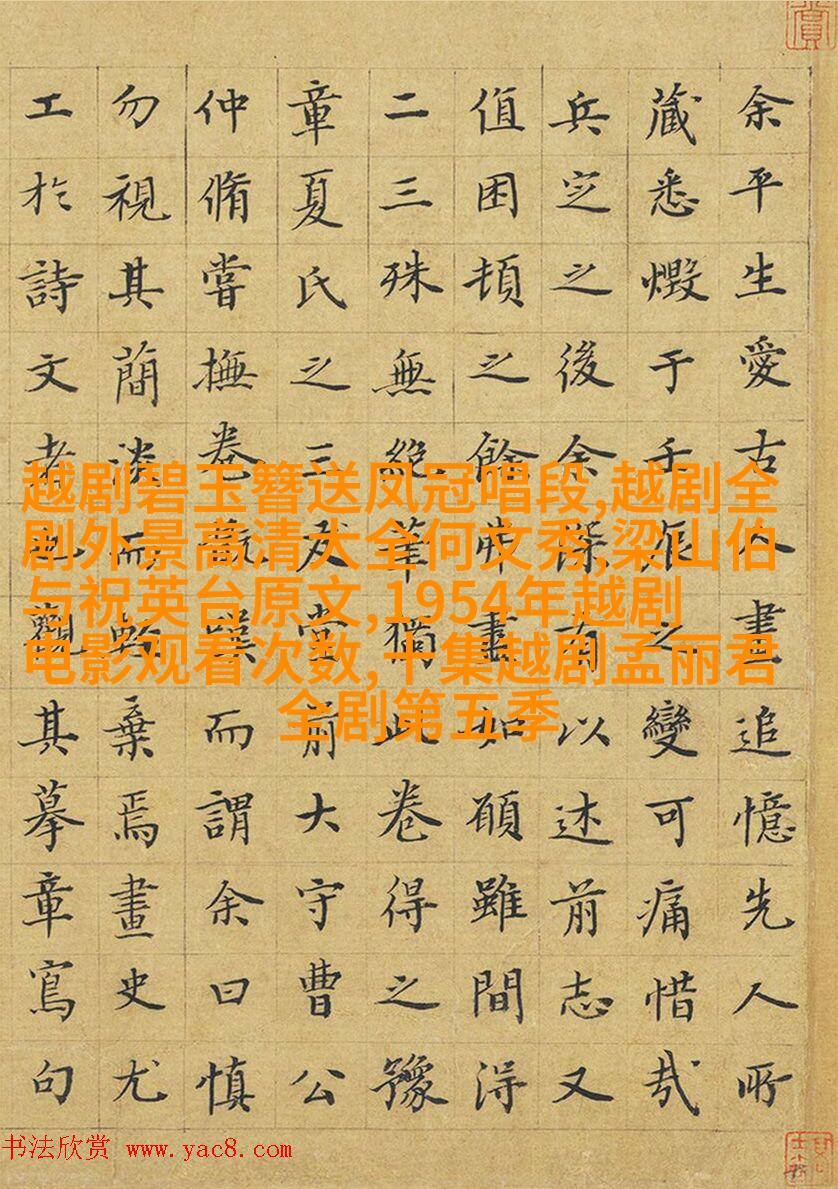 余平生愛古人畫追憶先人所
藏悉燬于壬辰之變可痛惜哉
兵定之後余深有以述前志又
值困頓之餘弗盡如願雖間得
二三殊無絕筆獨此卷得之豫
章夏氏之三友堂前大守曹公
仲脩嘗撫卷嘆而謂余曰慎
勿視其簡淡而棄焉畫史尤
工於詩文者也觀其摹章寫句
越剧碧玉簪送凤冠唱段,越剧全
剧外景高清大全何文秀,梁山伯
与祝英台原文,1954年越剧
电影观看次数,十集越剧孟丽君
全剧第五季
书法欣赏 www.yac8.com